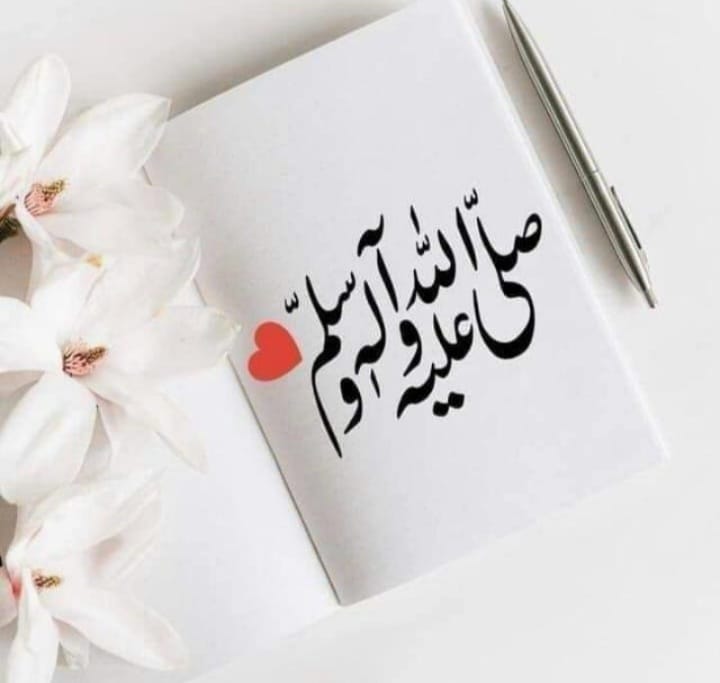 صلّى اللّٰه عليه وآله وسلّم